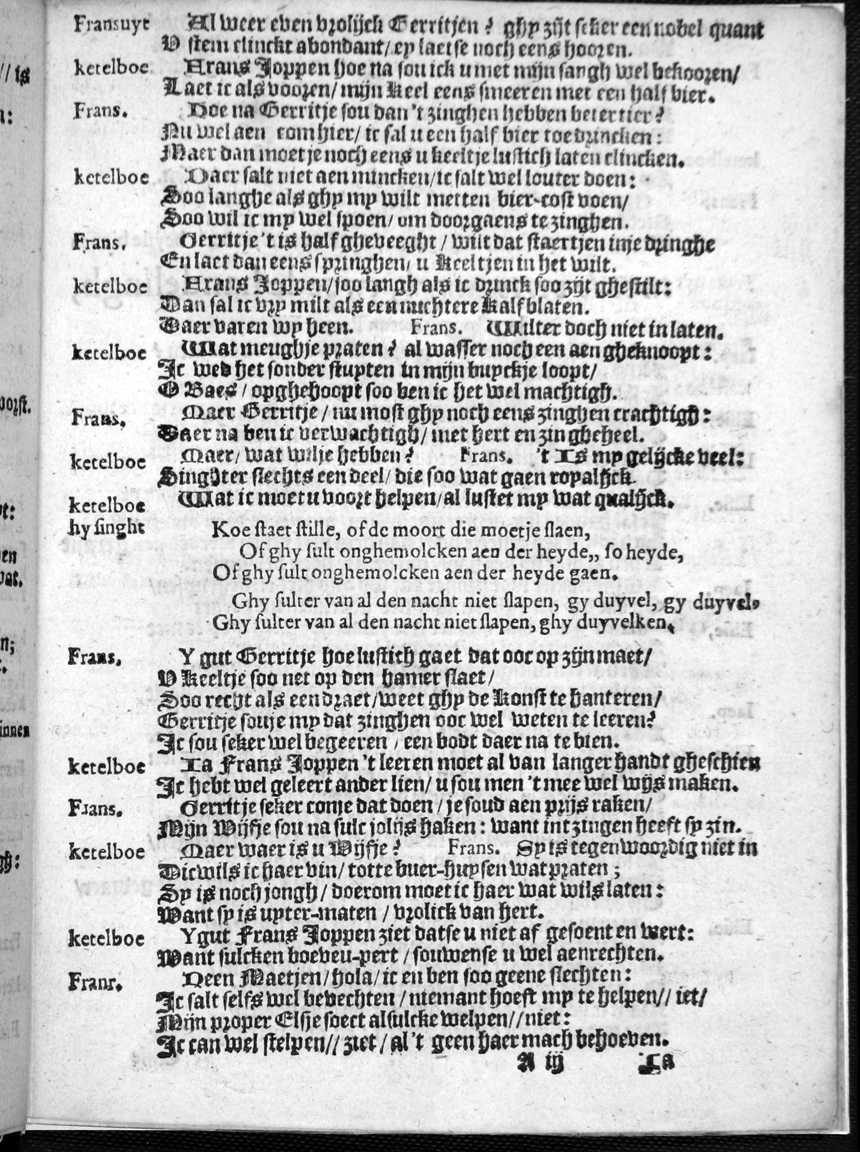 Fransuyt Al weer even vrolijck Gerritjen? ghy zijt seker een nobel quant
V stem clinckt abondant/ ey laetse noch eens hooren.
ketelboe Frans Joppen hoe na sou ick u met mijn sangh wel bekooren/
Laet ic als vooren/ mijn keel eens smeeren met een half bier.
Frans. Hoe na Gerritje sou dan 't zinghen hebben beter tier?
Nu wel aen com hier/ ic sal u een half bier toe drincken:
Maer dan moet je noch eens u keeltje lustich laten clincken.
ketelboe Daer salt niet aen mincken/ ic salt wel louter doen:
Soo langhe als ghy my wilt metten bier-cost voen/
Soo wil ic my wel spoen/ om doorgaens te zinghen.
Frans. Gerritje 't is half gheveeght / wilt dat staertjen inje dringhe
En laet dan eens springhen/ u keeltjen in het wilt.
ketelboe Frans Joppen/ soo langh als ic drinck soo zijt ghestilt:
Dan sal ic vry milt als een nuchtere Kalf blaten.
Waer varen wy heen. Frans. Wilter doch niet in laten.
ketelboe Wat meughje praten? al wasser noch een aen gheknoopt:
Ic wed het sonder stuyten in mijn buyckje loopt/
O Baes / opghehoopt soo ben ic het wel machtigh.
Frans. Maer Gerritje / nu most ghy noch eens zinghen crachtigh:
Daer na ben ic verwachtigh/ met hert en zin gheheel.
ketelboe Maer/ wat wilje hebben? Frans. 't Is my gelijcke veel:
Singhter slechts een deel/ die soo wat gaen royalijck.
ketelboe Wat ic moet u voort helpen/ al lustet my wat qualijck.
hy singht Koe staet stille, of de moort die moetje slaen,
Of ghy sult onghemolcken aen der heyde,, so heyde,
Of ghy sult onghemolcken aen der heyde gaen.
Ghy sulter van al den nacht niet slapen, gy duyvel, gy duyvel,
Ghy sulter van al den nacht niet slapen, ghy duyvelken.
Frans. Y gut Gerritje hoe lustich gaet dat ooc op zijn maet/
V keeltje soo net op den hamer slaet/
Soo recht als een draet/ weet ghy de Konst te hanteren/
Gerritje souje my dat zinghen ooc wel weten te leeren?
Ic sou seker wel begeeren / een bodt daer na te bien.
ketelboe Ia Frans Joppen 't leeren moet al van langer handt gheschien
Ic hebt wel geleert ander lien/ u sou men 't mee wel wijs maken.
Frans. Gerritje seker conje dat doen / je soud aen prijs raken/
Mijn Wijfje sou na sulc jolijs haken: want int zingen heeft sy zin.
ketelboe Maer waer is u Wijfje? Frans. Sy is tegenwoordig niet in
Dicwils ic haer vin/ totte buer-huysen wat praten;
Sy is noch jongh / doerom moet ic haer wat wils laten:
Want sy is uyter-maten / vrolick van hert.
ketelboe Ygut Frans Joppen ziet datse u niet af gesoent en wert:
Want sulcken boeveu-pert / souwense u wel aenrechten.
Frans. Neen Maetjen/ hola/ ic en ben soo geene slechten:
Ic salt selfs wel bevechten / niemant hoeft my te helpen// iet/
Mijn proper Elsje soect alsulcke welpen//niet:
Ic can wel stelpen// ziet / al 't geen haer mach behoeven.
A iij Ia